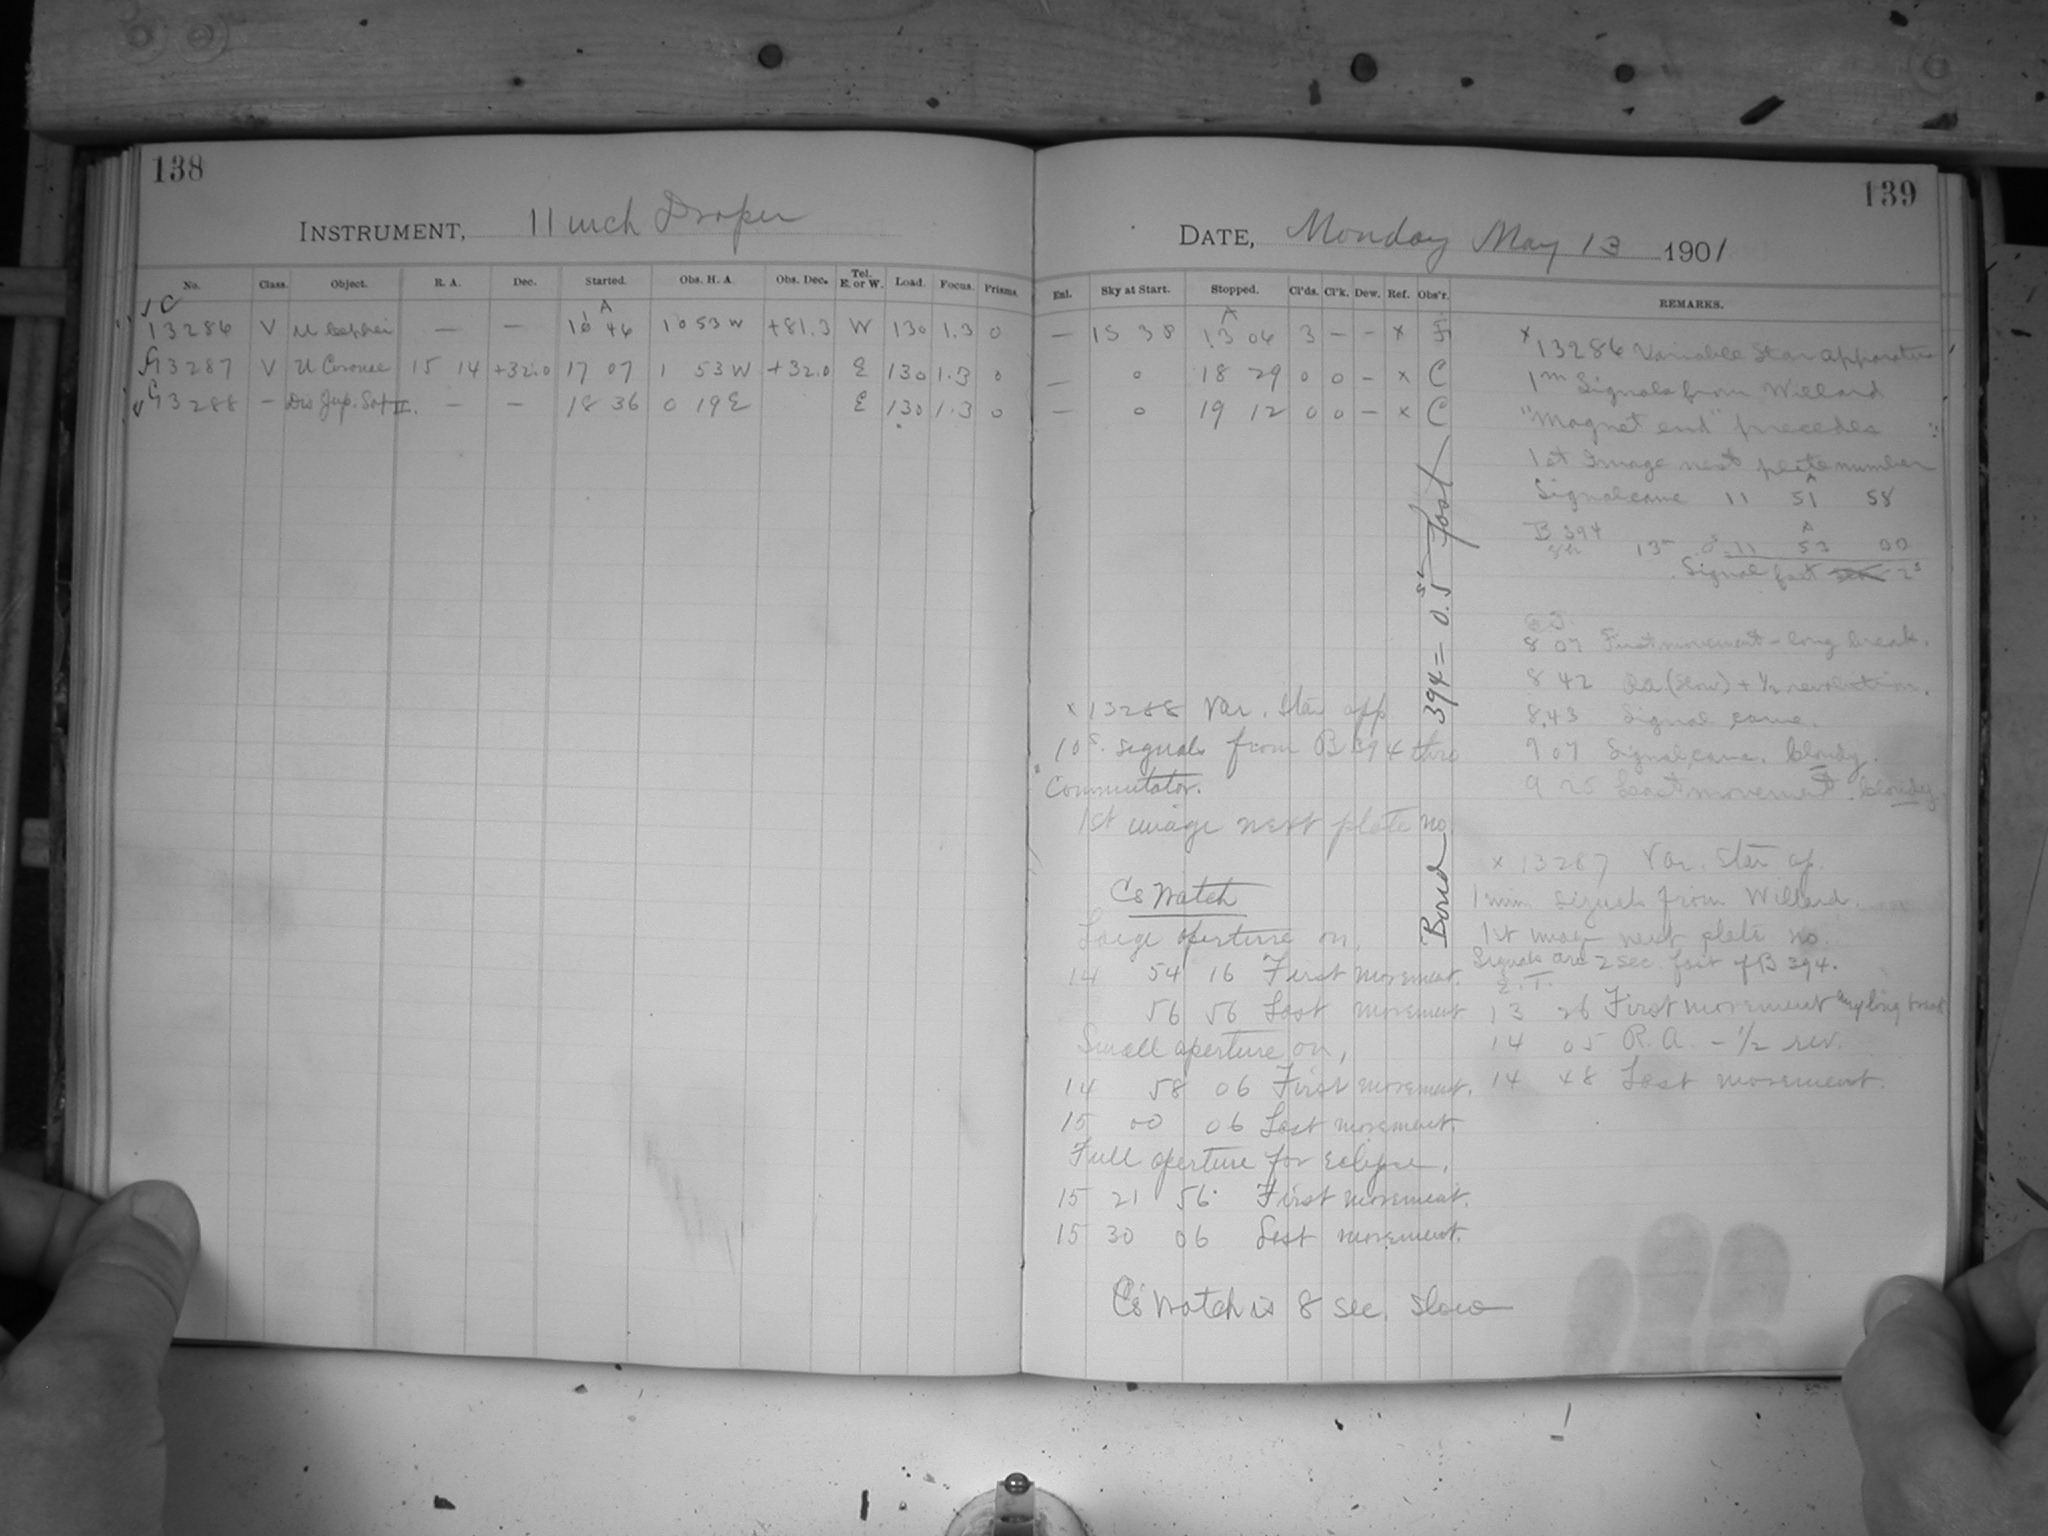 138
INSTRUMENT, 11 inch Draper
No. Class. Object. R. A. Dec. Started. Obs. H. A. Obs. Dec. Tel. E. or W. Load. Focus. Prisms.
13286 V U Cephei — — A 46 10 53 W +81.3 W 130 1.3 0
13287 V U Coronae 15 14 +32.0 17 07 1 53 W +32.0 E 130 1.3 0
13288 — Jup. Sat II. — — 18 36 0 19 E E 130 1.3 0
139
DATE, Monday May 13 1901
Enl. Sky at Start. Stopped. Cl'ds. Cl'k. Dew. Ref. Obs'r. REMARKS.
— 15 38 A 13 04 3 — — x F
— 0 18 29 0 0 — x C
— 0 19 12 0 0 — x C
x 13286 Variable Star apparatus
1m Signals from Willard
"Magnet end" precedes
1st Image next plate number
Signal came 11 51 58
A
B 394 13m 11 53 00
Signal fast 2s
8 07 First movement - long break.
8 42 R.A. (slow) + 1/2 revolution.
8.43 Signal came.
9 07 Signal came. Cloudy.
9 25 Last movement. Cloudy
x 13287 Var. Star ap.
1 min signals from Willard.
1st image next plate no.
Signals are 2 sec. fast of B 394.
E. T.
13 26 First movement long break
14 05 R.A. - 1/2 rev.
14 48 Last movement.
Bond 394 = 0.5s fast
x 13288 Var. Star app
10s. signals from B 394 thro
Commutator.
1st image next plate no
C's Watch
Large aperture on,
14 54 16 First movement.
56 56 Last movement
Small aperture on,
14 58 06 First movement.
15 00 06 Last movement.
Full aperture for eclipse.
15 21 56 First movement.
15 30 06 Last movement.
C's Watch is 8 sec. slow